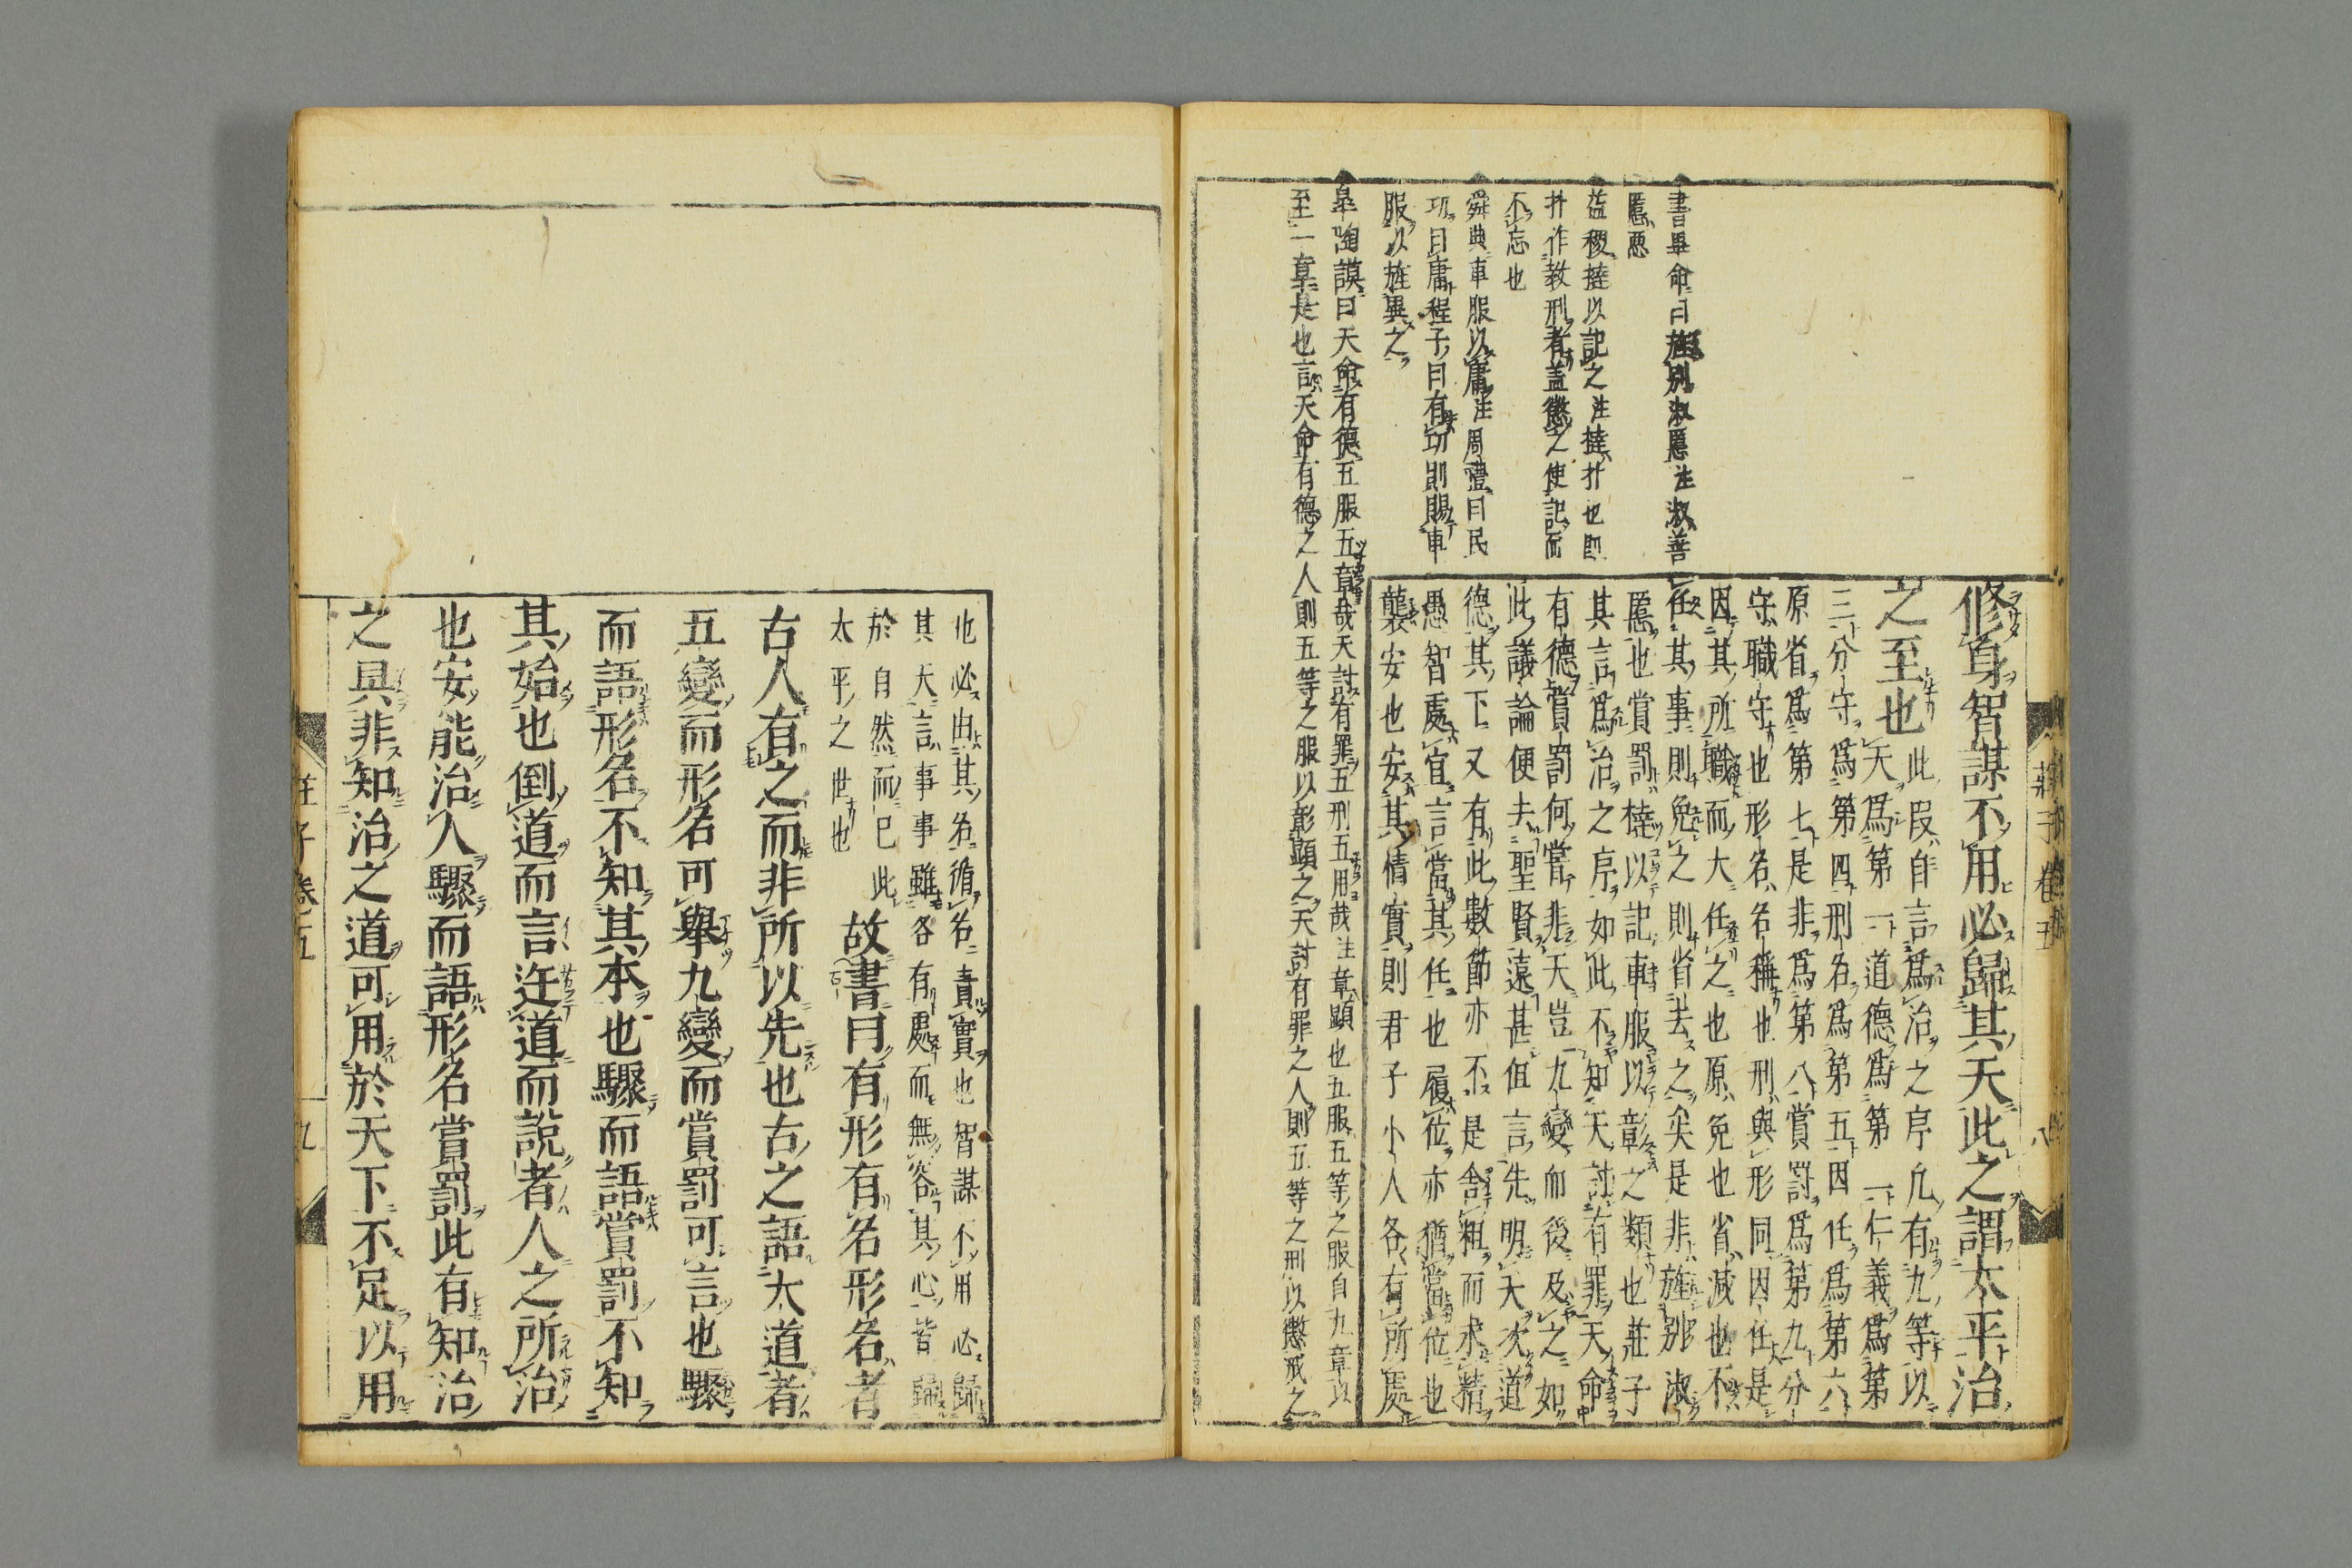 莊子卷五
八
修身智謀不用必歸其天此之謂太平治
之至也
此段自言爲治之序凡有九等以
天爲第一道德爲第二仁義爲第
三分守爲第四刑名爲第五因任爲第六
原省爲第七是非爲第八賞罰爲第九分
守職守也形名名稱也刑與形同因任是
因其所職而大任之也原免也省減也不
任其事則免之則省去之矣是非旌別淑
慝也賞罰撻以記車服以彰之類也莊子
其言爲治之序如此不知天討有罪天命
有德賞罰何嘗非天豈九變而後及之如
此議論便去聖賢遠甚但言先明天次道
德其下又有此數節亦不是舍粗而求精
愚智處宜言當其任也履位亦猶當位也
襲安也安其情實則君子小人各有所處
書畢命曰旌別淑慝注淑善
慝惡
益稷撻以記之注撻扑也即
扑作教刑者蓋懲之使記而
不忘也
舜典車服以庸注周禮曰民
功曰庸程子曰有功則賜車
服以旌異之
皐陶謨曰天命有德五服五章哉天討有罪五刑五用哉注章顯也五服五等之服自九章以
至一章是也言天命有德之人則五等之服以彰顯之天討有罪之人則五等之刑以懲戒之
也必由其名循名責實也智謀不用必歸
其天言事事雖各有處而無容其心皆歸
於自然而已此
太平之世也
故書曰有形有名形名者
古人有之而非所以先也古之語大道者
五變而形名可舉九變而賞罰可言也驟
而語形名不知其本也驟而語賞罰不知
其始也倒道而言迕道而說者人之所治
也安能治人驟而語形名賞罰此有知治
之具非知治之道可用於天下不足以用
莊子卷五
九